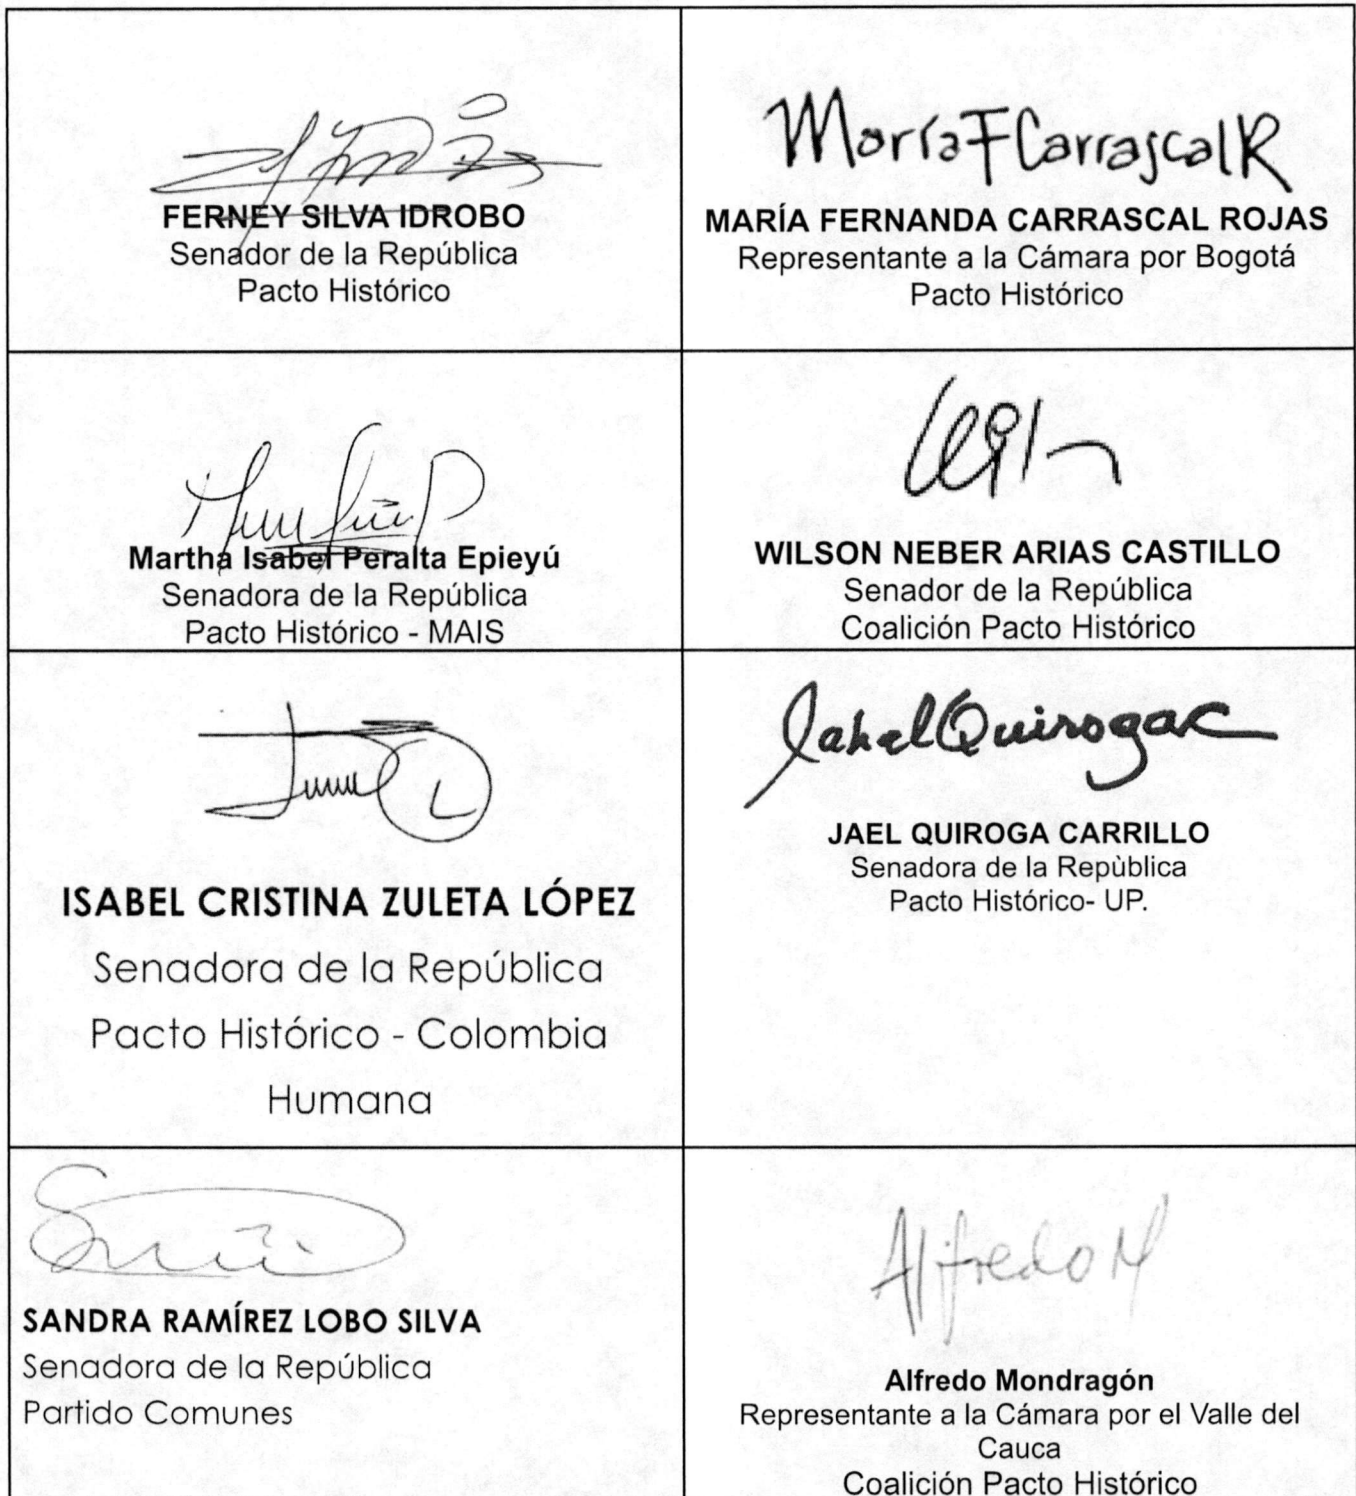 FERNEY SILVA IDROBO
Senador de la República
Pacto Histórico
María F Carrascal R
MARÍA FERNANDA CARRASCAL ROJAS
Representante a la Cámara por Bogotá
Pacto Histórico
Martha Isabel Peralta Epieyú
Senadora de la República
Pacto Histórico - MAIS
WILSON NEBER ARIAS CASTILLO
Senador de la República
Coalición Pacto Histórico
ISABEL CRISTINA ZULETA LÓPEZ
Senadora de la República
Pacto Histórico - Colombia
Humana
Jahel Quiroga C
JAEL QUIROGA CARRILLO
Senadora de la Repùblica
Pacto Histórico- UP.
SANDRA RAMÍREZ LOBO SILVA
Senadora de la República
Partido Comunes
Alfredo M
Alfredo Mondragón
Representante a la Cámara por el Valle del
Cauca
Coalición Pacto Histórico